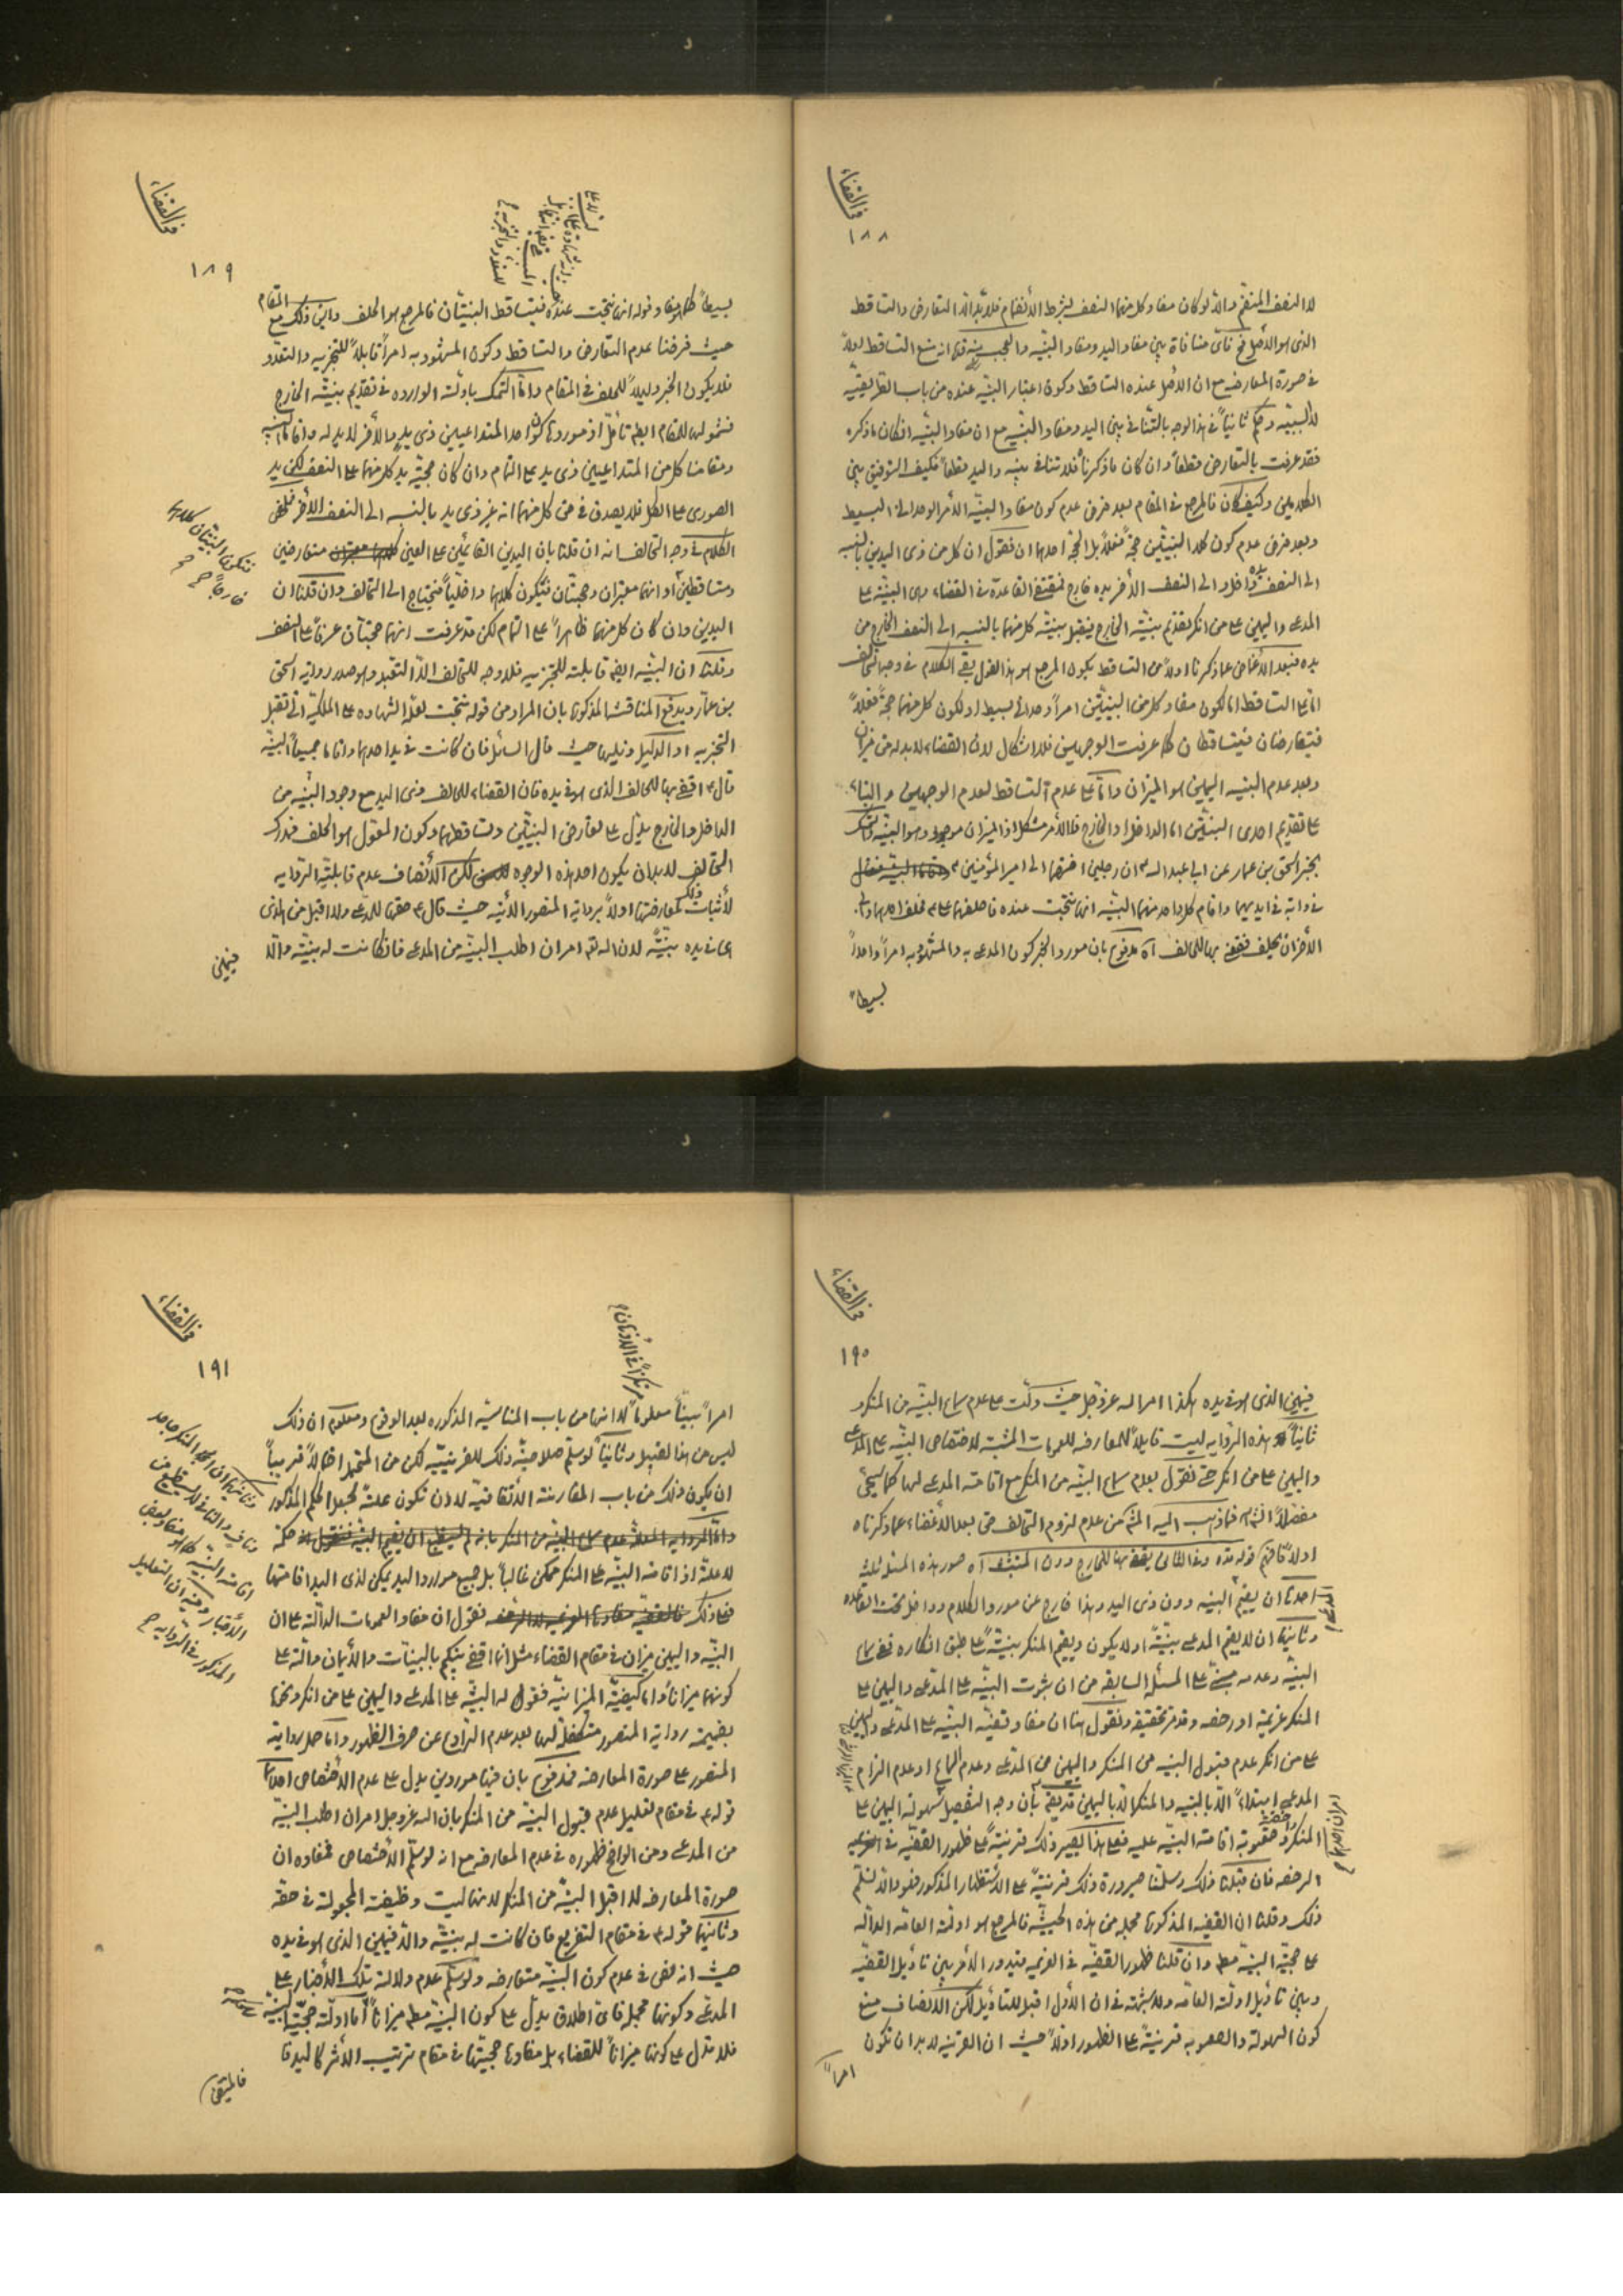 في القضاء
١٨٨
لا النصف المنضم والا لو كان مفاد كل منهما النصف بشرط الانضمام فلا بد اذا التعارض والتساقط
الذى هو الاصل فح تاتى منافاة بين مفاد اليد ومفاد البينه والعجب منه قده انه منع التساقط اولاً
في صورة المعارضه مع ان الاصل عنده التساقط وكون اعتبار البينه عنده من باب الطريقيه
لا السببيه وحكم ثانياً في هذا الوجه بالتنافي بين اليد ومفاد البينه مع ان مفاد البينه ان كان ما ذكره
فقد عرفت بالتعارض قطعاً وان كان ما ذكرنا فلا تنافي بينه واليد قطعاً فكيف التوفيق بين
الكلامين وكيف كان فالمرجع في المقام بعد فرض عدم كون مفاد البينه الامر الوحداني البسيط
وبعد فرض عدم كون كلا البينتين حجة فعلاً بل الحجة احدهما ان نقول ان كل من ذى اليدين بالنسبه
الى النصف داخل والى النصف الآخر يده خارج فمقتضى القاعدة في القضاء وهى البينه على
المدعى واليمين على من انكر تقديم بينة الخارج فيقبل بينة كل منهما بالنسبه الى النصف الخارج من
يده فبعد الاغماض عما ذكرنا اولاً من التساقط يكون المرجع هو هذا القول بقى الكلام في وجه التحالف
اما على التساقط اما لكون مفاد كل من البينتين امراً وحدانى بسيط او لكون كل منهما حجة فعلاً
فيتعارضان فيتساقطان كما عرفت الوجهين فلا اشكال لان القضاء لا بد له من ميزان
وبعد عدم البينه اليمين هو الميزان واما على عدم التساقط لعدم الوجهين والبناء
على تقديم احدى البينتين اما الداخل او الخارج فالامر مشكل اذ الميزان موجود وهو البينه والتمسك
بخبر اسحق بن عمار عن ابي عبد الله ع ان رجلين اختصما الى امير المؤمنين ع
في دابة في ايديهما واقام كل واحد منهما البينه انها نتجت عنده فاحلفهما على ع فحلف احدهما وابى
الآخر ان يحلف فقضى بها للحالف آه مدفوع بان مورد الخبر كون المدعى به والمشهود به امراً واحداً
بسيطاً
في القضاء
١٨٩
بسيطاً كما هو مفاد قوله انها نتجت عنده فيتساقط البينتان فالمرجع هو الحلف واين ذلك مع المقام
حيث فرضنا عدم التعارض والتساقط وكون المشهود به امراً قابلاً للتجزيه والتعدد
فلا يكون الخبر دليلاً للحلف في المقام واما التمسك بادلة الوارده في تقديم بينة الخارج
فشمولها للمقام ايضا تأمل اذ موردها كون احد المتداعيين ذى يد والآخر لا يد له واقاما البينه
ومقامنا كل من المتداعيين ذى يد على التمام وان كان حجية يد كل منهما على النصف لكن يد
الصورى على الكل فلا يصدق في حق كل منهما انه غير ذى يد بالنسبه الى النصف الآخر فملخص
الكلام في وجه التحالف انه ان قلنا بان اليدين القائمين على العين متعارضين
ومتساقطين او انهما معتبران وحجتان فتكون كلاهما داخلياً فيحتاج الى التحالف وان قلنا ان
اليدين وان كان كل منهما ظاهراً على التمام لكن قد عرفت انهما حجتان عرفاً على النصف
وقلنا ان البينه ايضا قابلة للتجزيه فلا وجه للتحالف الا التعبد وهو صدر رواية اسحق
بن عمار ويدفع المناقشه المذكوره بان المراد من قوله نتجت لعله الشهاده على الملكية التي تقبل
التجزيه او الدليل ذيلها حيث قال السائل فان كانت في يد احدهما واقاما جميعاً البينه
قال ع اقضى بها للحالف الذى هو في يده فان القضاء للحالف وذى اليد مع وجود البينه من
الداخل والخارج يدل على تعارض البينتين وتساقطهما وكون المعول هو الحلف فمدرك
التحالف لا بد ان يكون احد هذه الوجوه لكن الانصاف عدم قابلية الروايه
لاثبات ذلك لمعارضتها اولاً برواية المنصور الآتيه حيث قال ع حقها للمدعى ولا اقبل من الذى
هى في يده بينةً لان الله تع امر ان اطلب البينه من المدعى فان كانت له بينة والا
فيمين
فتكون البينتان كلاهما
خارجاً صح
في القضاء
١٩٠
فيمين الذى هو في يده هكذا امر الله عز وجل حيث دلت على عدم سماع البينه من المنكر و
ثانياً هذه الروايه ليست قابلاً للمعارضه للعمومات المثبتة لاختصاص البينه على المدعى
واليمين على من انكر حتى نقول بعدم سماع البينه من المنكر مع اقامة المدعى لها كما سيجئ
مفصلاً انشاء فما ذهب اليه المشهور من عدم لزوم التحالف حق بعد الاغماض عما ذكرناه
اولاً فافهم قوله قده وفي الثانى يقضى بها للخارج دون المتشبث آه صور هذه المسئلة ثلثة
احدها ان يقيم المدعى البينه دون ذى اليد وهذا خارج عن مورد الكلام وداخل تحت القاعده
وثانيها ان لا يقيم المدعى بينةً او لا يكون ويقيم المنكر بينةً على طبق انكاره ففى سماع
البينه وعدمه مبنى على المسئله السابقه من ان ثبوت البينه على المدعى واليمين على
المنكر عزيمة او رخصه وقد مر تحقيقه ونقول هنا ان مفاد قضية البينه على المدعى واليمين
على من انكر عدم قبول البينه من المنكر واليمين من المدعى وعدم السماع او عدم الزام
المدعى ابتداءً الا بالبينه والمنكر الا باليمين قد يقع بان وجه التفصيل سهولة اليمين على
المنكر وصعوبة اقامة البينه عليه فعلى هذا يصير ذلك قرينةً على ظهور القضيه في
الرخصه فان قبلنا ذلك وسلمنا صيرورة ذلك قرينةً على الاستظهار المذكور فهو والا نسلم
ذلك وقلنا ان القضيه المذكوره مجمله من هذه الحيثيه فالمرجع هو ادلة العامه الداله
على حجية البينه مطلقا وان قلنا ظهور القضيه في العزيمه فيدور الامر بين تأويل القضيه
وبين تأويل ادلة العامه ولا شبهة في ان الاول اقبل للتأويل لكن الانصاف منع
كون السهولة والصعوبه قرينةً على الظهور اولاً حيث ان القرينه لا بد ان تكون
امراً
في القضاء
١٩١
امراً بيناً معلوماً لا انها من باب المناسبة المذكوره بعد الوقوع ومعلوم ان ذلك
ليس من هذا القبيل وثانياً لو سلم صلاحية ذلك للقرينيه لكن من المحتمل احتمالاً قريباً
ان يكون ذلك من باب المقارنة الاتفاقيه لا ان تكون علةً لجعل الحكم المذكور
حكمة
لا علة اذ اقامة البينه على المنكر ممكن غالباً بل جميع موارد اليد يمكن لذى اليد اقامتها
فعلى ذلك نقول ان مفاد العمومات الدالة على ان
البينه واليمين ميزان في مقام القضاء مثل انما اقضى بينكم بالبينات والايمان دالة على
كونهما ميزاناً واما كيفية الميزانية فقوله البينه على المدعى واليمين على من انكر ونحوها
بضميمة رواية المنصور متكفلة لها بعد عدم التراوح عن صرف الظهور واما حمل رواية
المنصور على صورة المعارضه فمدفوع بان فيها موردين يدل على عدم الاختصاص احدهما
قوله ع في مقام تعليل عدم قبول البينه من المنكر بان الله عز وجل امر ان اطلب البينه
من المدعى ومن الواضح ظهوره في عدم المعارضه مع انه لو سلم الاختصاص فمفاده ان
صورة المعارضه لا اقبل البينه من المنكر لانها ليست وظيفته المجعولة في حقه
وثانيهما قوله ع في مقام التفريع فان كانت له بينة والا فيمين الذى هو في يده
حيث انه نص في عدم كون البينه متعارضه ولو سلم عدم دلالة تلك الاخبار على
المدعى وكونها مجملة فاى اطلاق يدل على كون البينه مطلقا ميزاناً اما ادلة حجية البينه
فلا تدل على كونها ميزاناً للقضاء بل مفادها حجيتها في مقام ترتيب الاثر كاليد فا
فالمتيقن